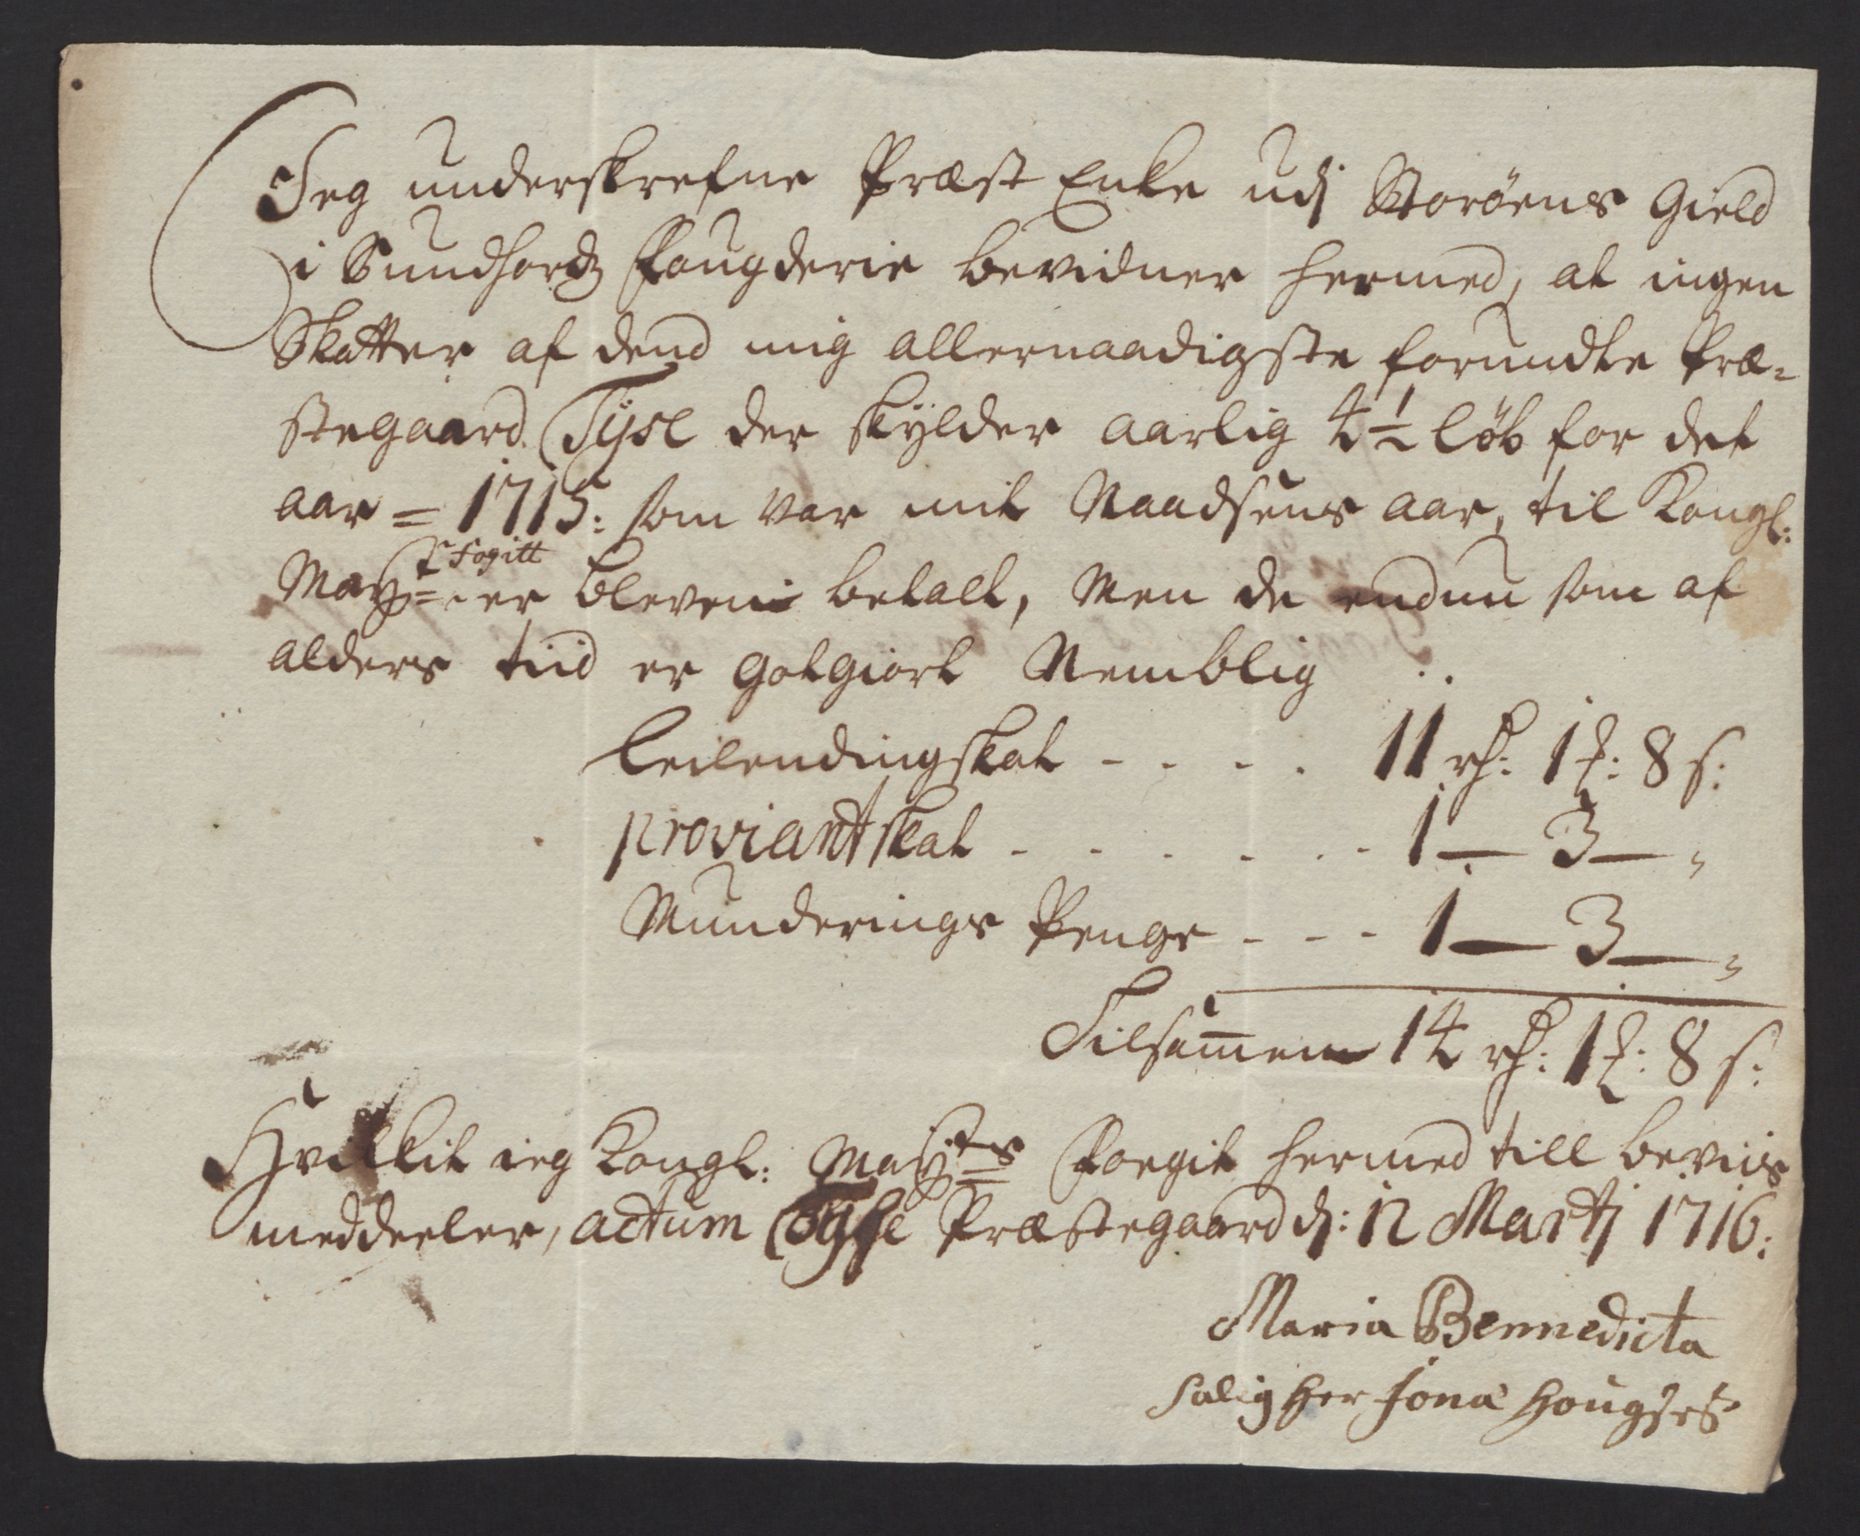 Jeg underskrefne Præst Enke udj Storøens Gield
i Sundhords Fougderie bevidner hermed, at ingen
Skatter af dend mig allernaadigste forundte Præ-
stegaard. Tyse der skylder aarlig 4½ løb for det
aar = 1715: som var mit Naadsens aar, til Kongl:
Mayts fogitt er bleven betalt, Men de endnu som af
alders tiid er godtgiort Nemblig
Leilendingskat - - - - 11 rh: 1 f: 8 s:
proviantskat - - - - - - 1 — 3 — "
Munderings Penge - - - 1 — 3 — "
Tilsam̄en 14 rh: 1 f: 8 s:
Hvilkit ieg Kongl: Mayts Foegit hermed till beviis
meddeeler, actum Tyse Præstegaard dj: 12 Martj 1716:
Maria Bennedicta
Salig Her Jona Hougs